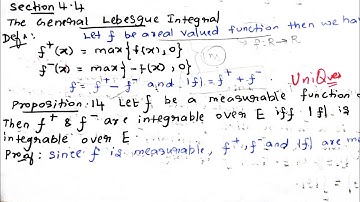 Section 4.4
The General Lebesgue Integral
Defn: Let f be a real valued function then we hav
f⁺(x) = max{f(x), 0}
f: R → R
f⁻(x) = max{-f(x), 0}
f = f⁺ - f⁻ and |f| = f⁺ + f⁻
UniQues
Proposition: 14 Let f be a measurable function o
Then f⁺ & f⁻ are integrable over E iff |f| is
integrable over E.
Proof: Since f is measurable, f⁺, f⁻ and |f| are me